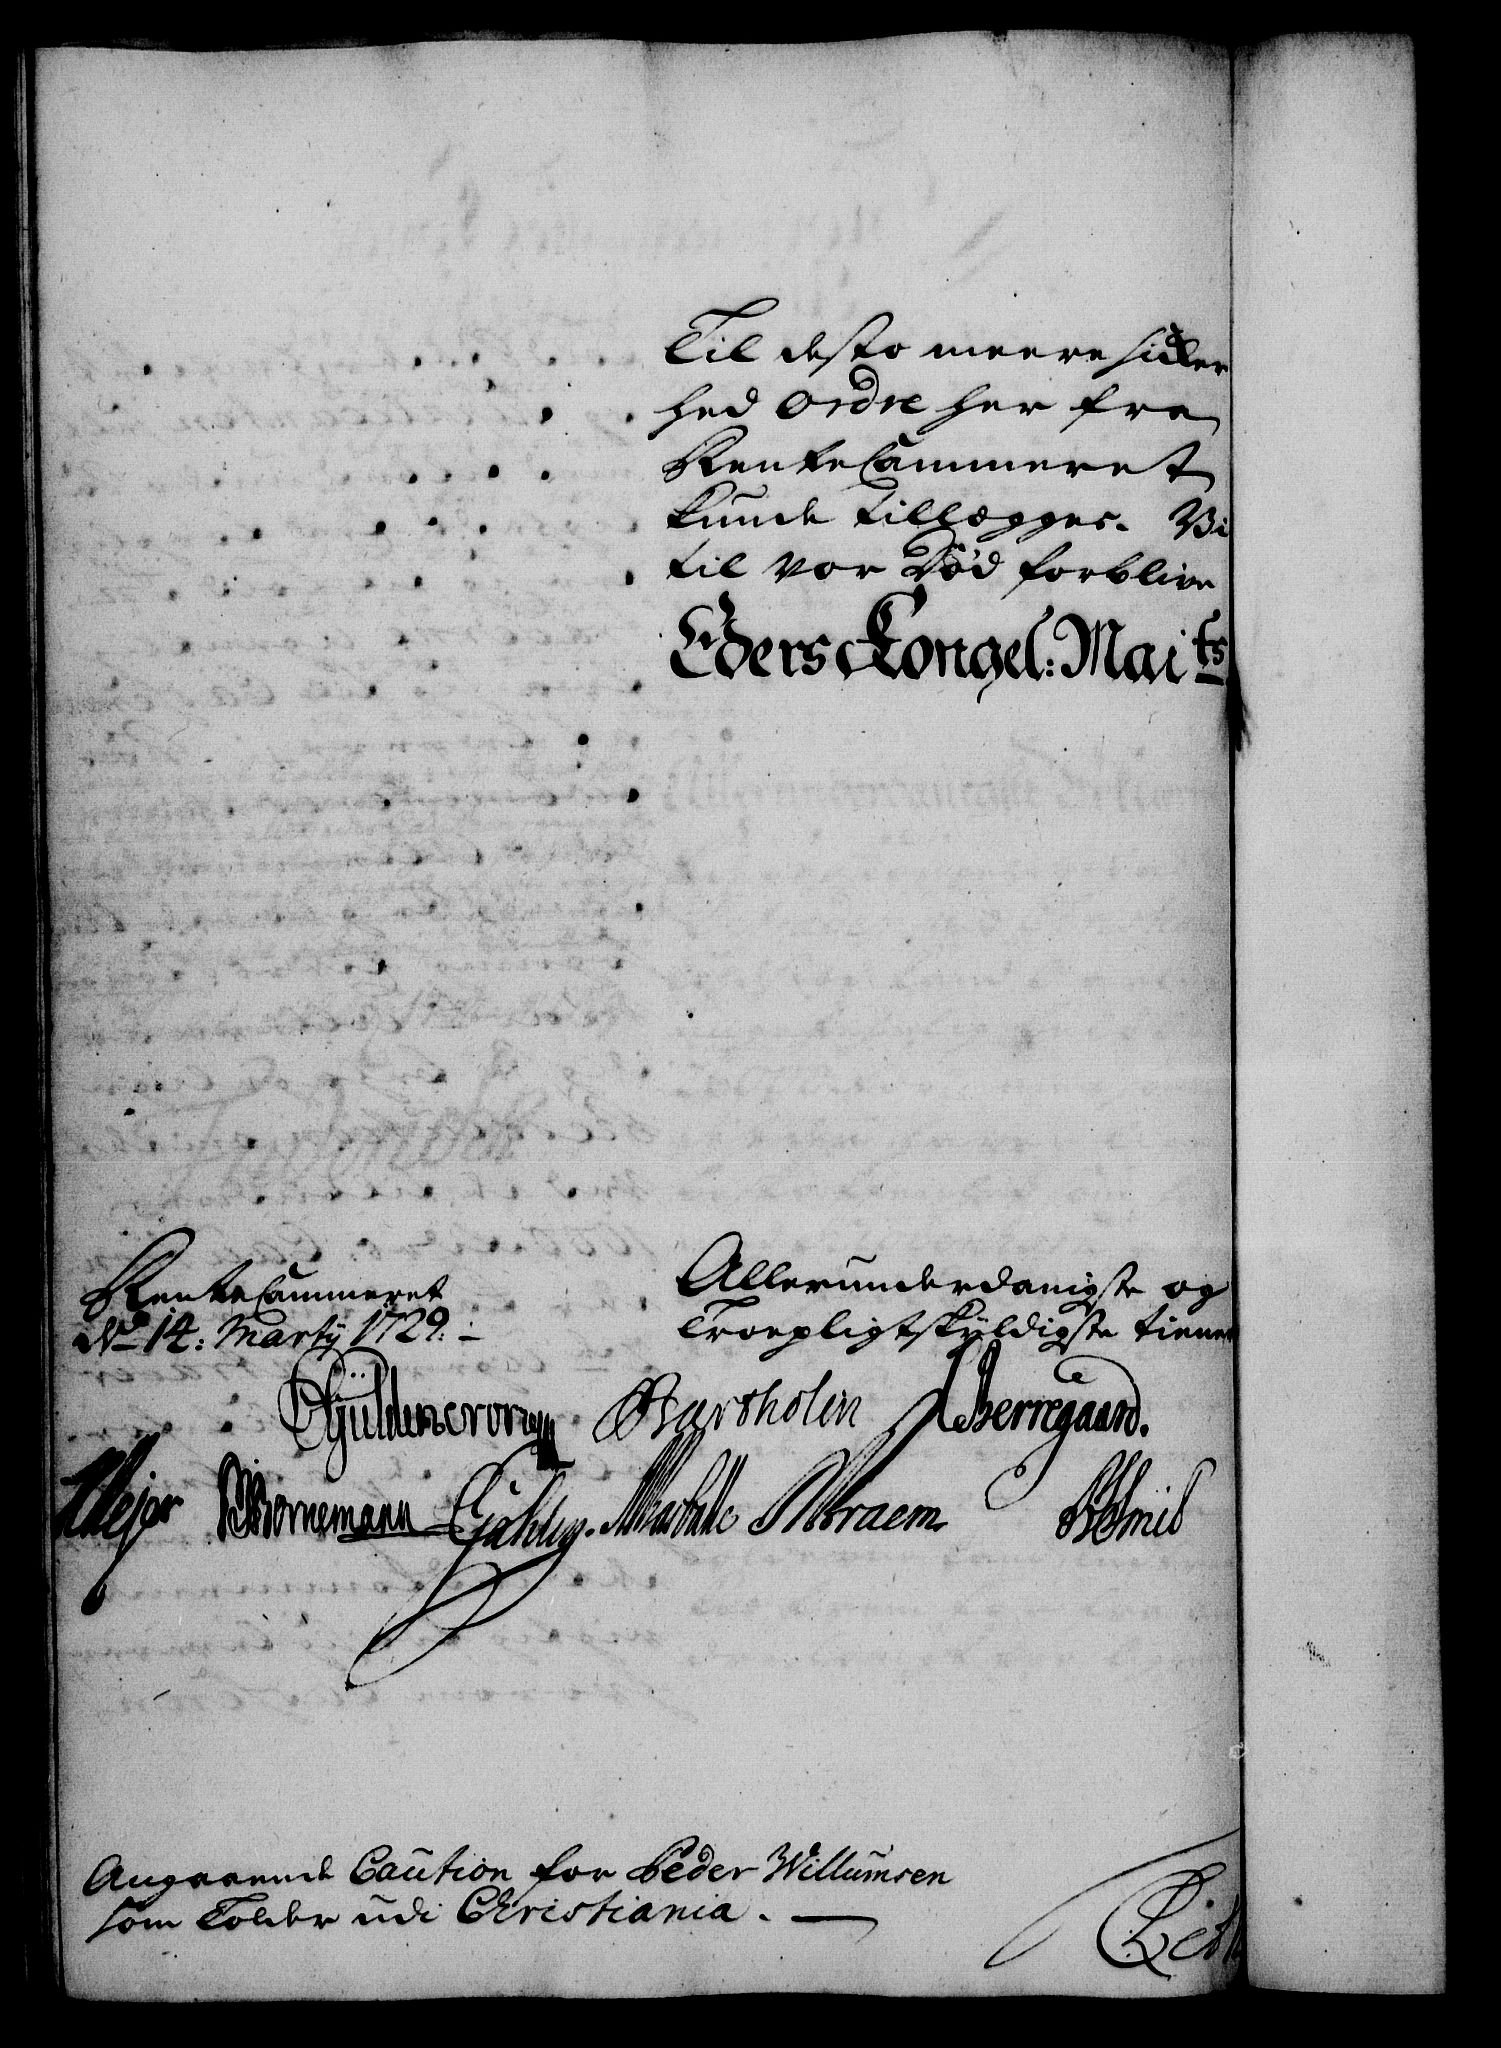 Til desto meere Sicker
hed Ordre her fra
RenteCammeret
kunde tillegges. Vi
til vor Död forblive
Eders Kongel: Maits
RenteCammeret
d. 14: Martÿ 1729.
Allerunderdanigste og
Troepligtskÿldigste tiener
Gÿldencrone Bartholin Berregaard.
Mejer Bornemann Braem Smid
Angaaende Caution for Peder Willumsen
som Tolder udi Christiania.